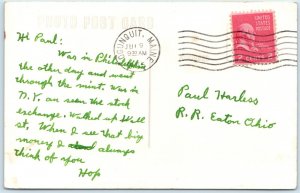 PHOTO POST CARD
OGUNQUIT, MAINE
9
9 30 AM
UNITED STATES
POSTAGE
Hi Paul:
Was in Philadelphia
the other day and went
through the mint. Was in
N.Y. an seen the stock
exchange. Walked up Wall
st. When I see that big
money I always
think of you
Hop
Paul Harless
R.R. Eaton Ohio